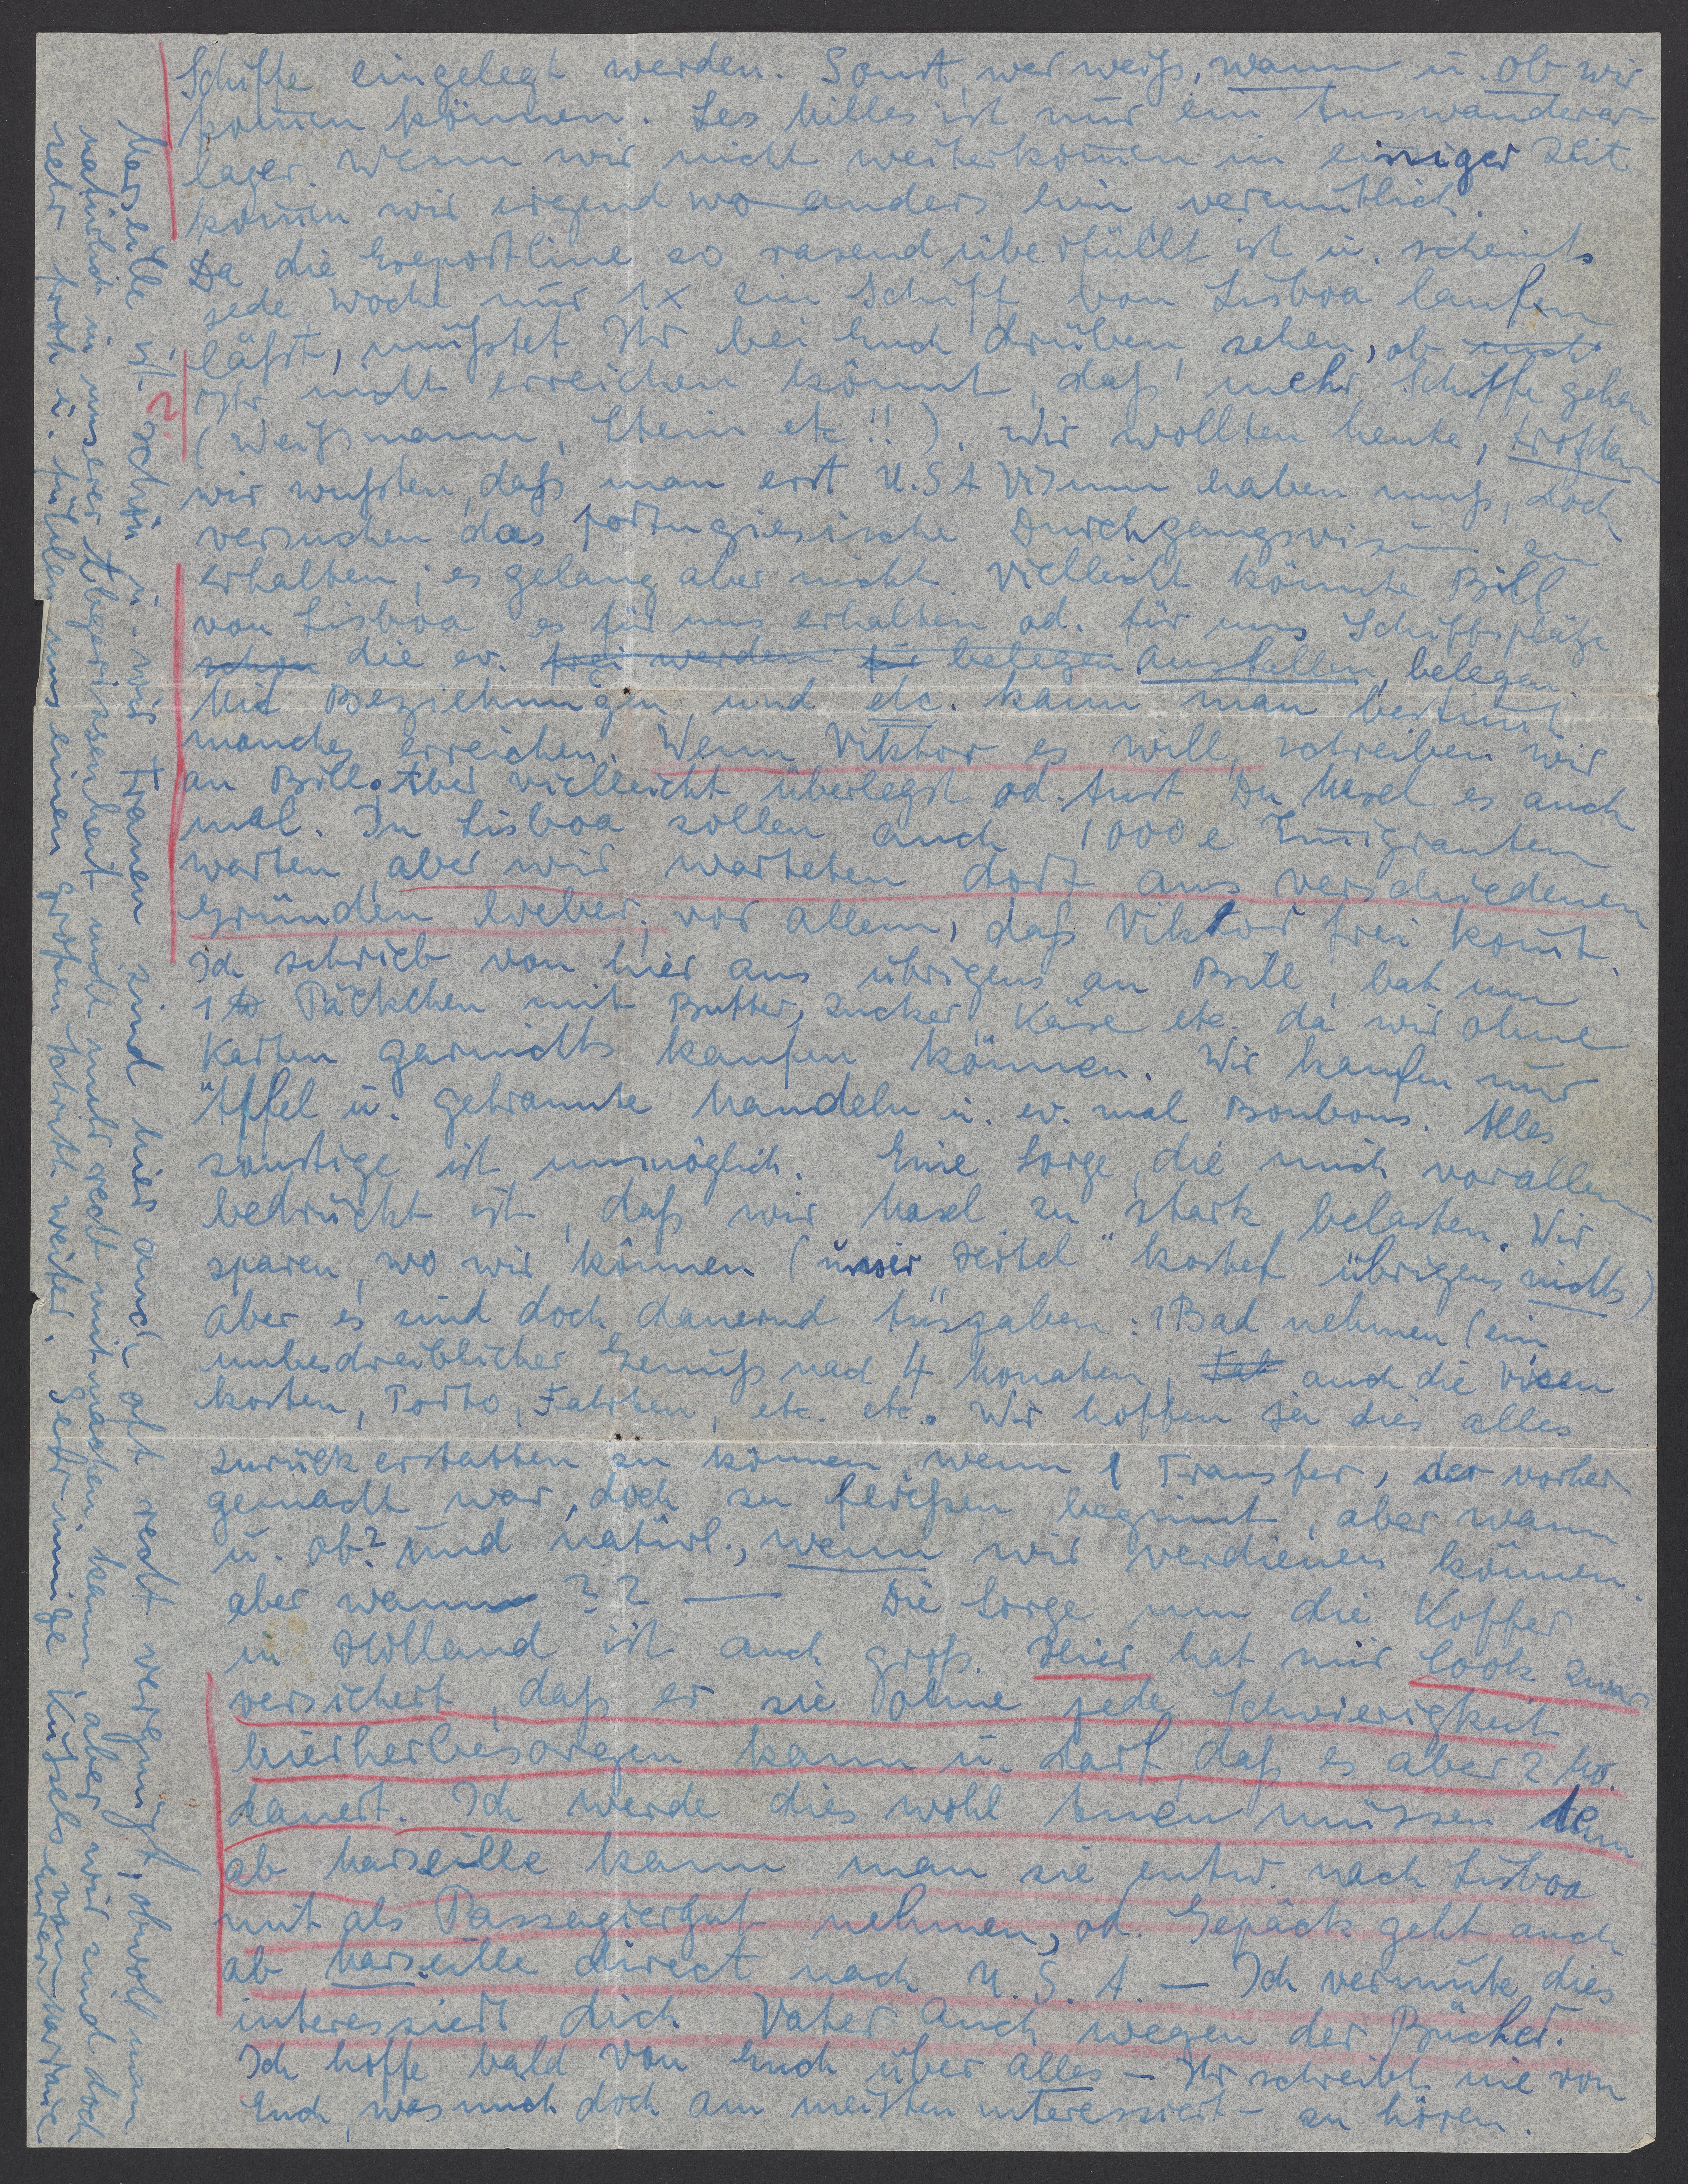 Schiffe eingelegt werden. Sonst, wer weiß, wann u. ob wir
kommen können. Les Milles ist nur ein Auswanderer-
lager. Wenn wir nicht weiterkommen in einiger Zeit
kommen wir irgend wo anders hin vermutlich.
Da die Exportline so rasend überfüllt ist u. scheints
jede Woche nur 1x ein Schiff von Lisboa laufen
läßt, müßtet Ihr bei Euch drüben sehen, ob
Ihr nicht erreichen könnt, daß mehr Schiffe gehen
(Weißmann, Stein etc!!). Wir wollten heute, trotzdem
wir wußten, daß man erst U.S.A Visum haben muß, doch
versuchen das portugiesische Durchgangsvisum zu
erhalten; es gelang aber nicht. Vielleicht könnte Bill
von Lisboa es für uns erhalten od. für uns Schiffsplätze
schon die ev. frei werden für belegen ausfallen, belegen.
Mit Beziehungen, und etc. kann man bestimmt
manches erreichen. Wenn Viktor es will, schreiben wir
an Bill. Aber vielleicht überlegst od. tust Du Masel es auch
mal. In Lisboa sollen auch 1000e Emigranten
warten, aber wir warteten dort aus verschiedenen
Gründen lieber, vor allem, daß Viktor frei kommt.
Ich schrieb von hier aus übrigens an Bill, bat um
1 Päckchen mit Butter, Zucker, Käse etc. da wir ohne
Karten garnichts kaufen können. Wir kaufen nur
Äpfel u. gebrannte Mandeln u. ev. mal Bonbons. Alles
sonstige ist unmöglich. Eine Sorge, die mich vorallem
bedrückt ist, daß wir Masel zu stark belasten. Wir
sparen, wo wir können (unser "Hotel" kostet übrigens nichts)
aber es sind doch dauernd Ausgaben: 1 Bad nehmen (ein
unbeschreiblicher Genuß nach 4 Monaten, auch die Visen
kosten, Porto, Fahrten, etc. etc. Wir hoffen ja dies alles
zurückerstatten zu können, wenn 1 Transfer, der vorher
gemacht war, doch zu fließen beginnt, aber wann
u. ob? und natürl., wenn wir verdienen können.
aber wann ?? — Die Sorge um die Koffer
in Holland ist auch groß. Hier hat mir Cook zwar
versichert, daß er sie ohne jede Schwierigkeit
hierherbesorgen kann u. darf, daß es aber 2 Mo.
dauert. Ich werde dies wohl tuen müssen denn
ab Marseille kann man sie entw. nach Lisboa
mit als Passagiergut nehmen, od. Gepäck geht auch
ab Marseille direct nach U.S.A. — Ich vermute, dies
interessiert dich Vater auch wegen der Bücher.
Ich hoffe bald von Euch über alles — Ihr schreibt nie von
Euch, was mich doch am meisten interessiert — zu hören.
Marseille ist schön u. wir Frauen sind hier auch oft recht vergnügt, obwohl man
natürlich in unserer Abgerissenheit nicht mehr recht mitmachen kann, aber wir sind doch
sehr froh u. fühlen uns einen großen Schritt weiter. Sehr innige Küsse von Eurer Marianne